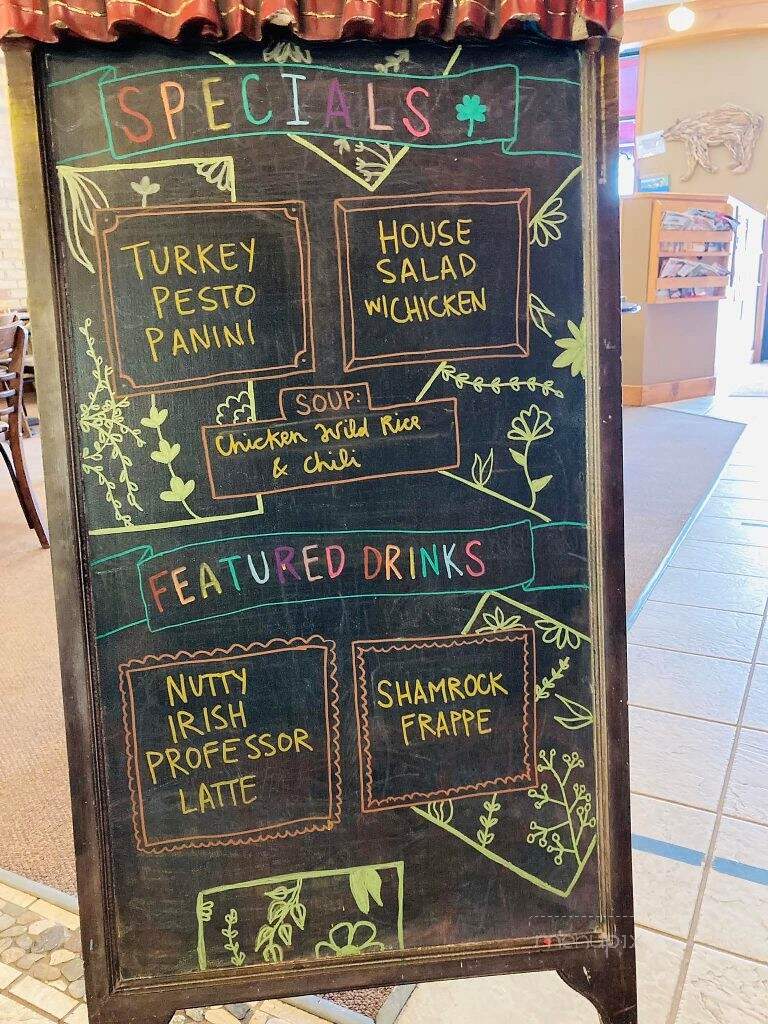 SPECIALS
TURKEY
PESTO
PANINI
HOUSE
SALAD
W/CHICKEN
SOUP:
Chicken Wild Rice
& Chili
FEATURED DRINKS
NUTTY
IRISH
PROFESSOR
LATTE
SHAMROCK
FRAPPE
menupix